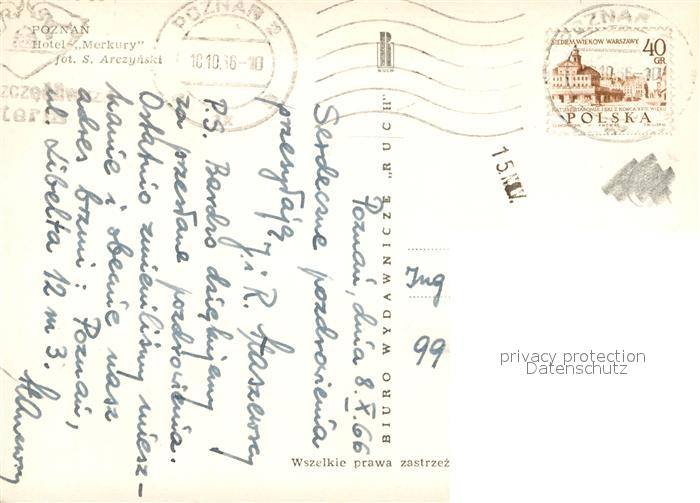 POZNAŃ
Hotel „Merkury"
fot. S. Arczyński
POZNAŃ 2
10.10.66-10
RUCH
SIEDEM WIEKÓW WARSZAWY
40
GR
POLSKA
15.
BIURO WYDAWNICZE „RUCH"
Poznań, dnia 8.X.66
Serdeczne pozdrowienia
przesyłają J. i R.
P.S. Bardzo dziękujemy
za przesłane pozdrowienia.
Ostatnio zmieniliśmy miesz-
kanie i obecnie nasz
adres brzmi: Poznań,
ul. Libelta 12 m 3.
Ing
99
privacy protection
Datenschutz
Wszelkie prawa zastrzeż